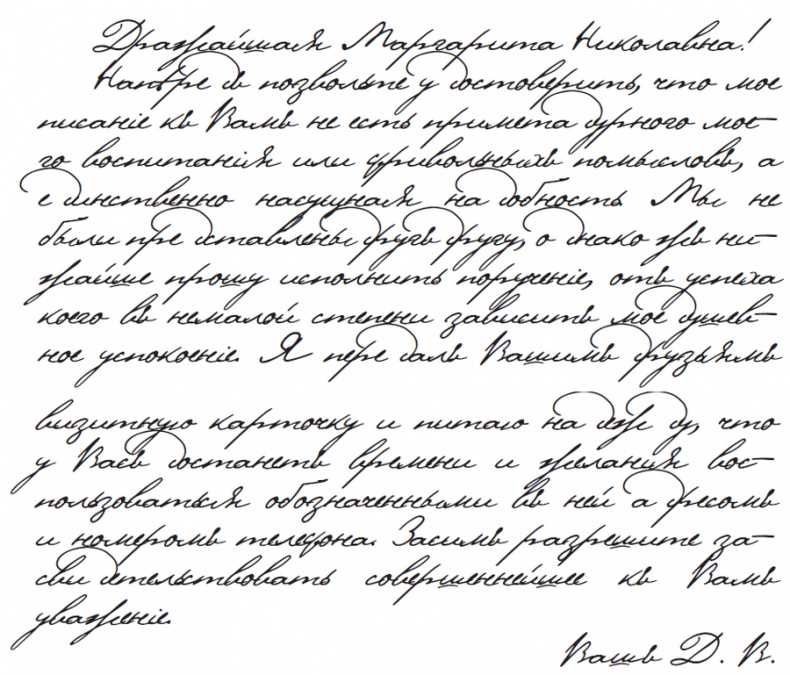 Дражайшая Маргарита Николавна!
Напредъ позвольте удостоверить, что мое
писаніе къ Вамъ не есть примета дурного мое-
го воспитанія или фривольныхъ помысловъ, а
единственно насущная надобность Мы не
были представлены другъ другу, однако жъ ни-
жайше прошу исполнить порученіе, отъ успеха
коего въ немалой степени зависитъ мое душев-
ное успокоеніе. Я передалъ Вашимъ друзьямъ
визитную карточку и питаю надежду, что
у Васъ достанетъ времени и желанія вос-
пользоваться обозначенными въ ней адресомъ
и номеромъ телефона. Засимъ разрешите за-
свидетельствовать совершеннейшее къ Вамъ
уваженіе.
Вашъ Д. В.